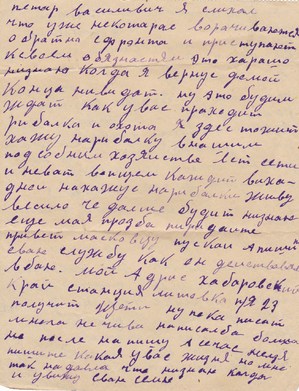 петар васильвич я слихал
что уже некотарае ворачиваются
обратна с фронта и приступают
к своем обязностям это харашо
низнаю когда я вернус домой
конца ни видат. ну это будим
ждат как у вас праходит
рибалка и охота я здес тожи
хажу на рибалку в нашим
подсобним хозяистве ест сети
и неват вопщем каждит виха-
дной нахажус на рибалки живу
весило че далше будит низнаю
еще мая прозба пиридаите
привет масковцу пускаи апишит
сваю службу как он действовал
в бою. мой Адрис хабаровский
край станция литовка п/я 23
получит ну пока писат
многа нечива написал больше
но после напишу я сечас весля
пишите какая у вас жизня но мне
так надаела что низнаю когда
я увижу сваю семю